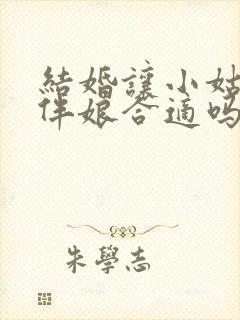 結婚讓小姑
伴娘合適嗎
朱學志